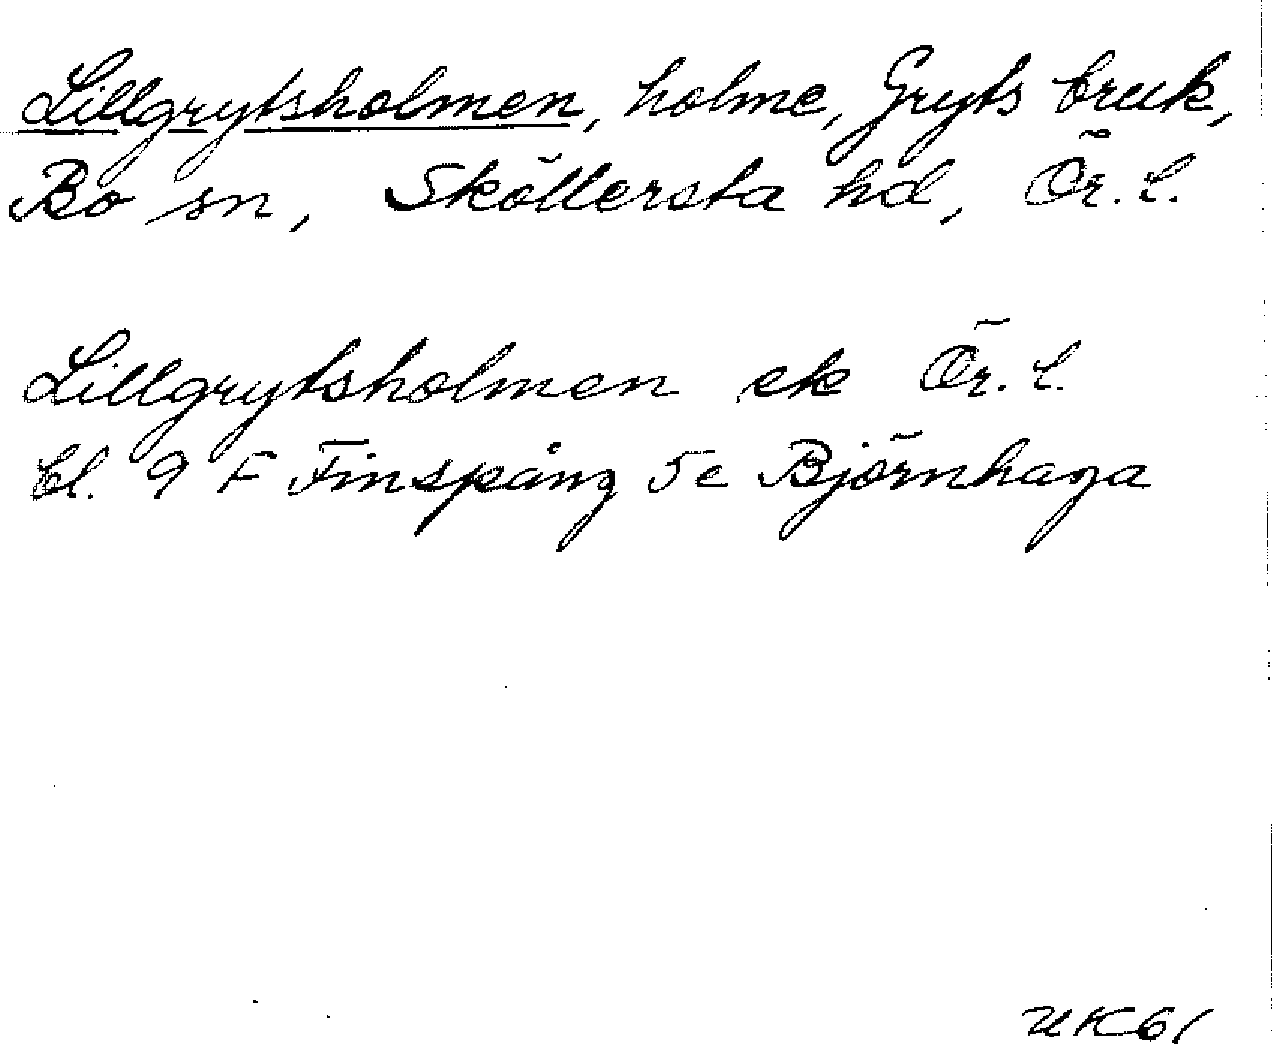 Lillgrytsholmen, holme, Gryts bruk,
Bo sn, Sköllersta hd, Ör. l.
Lillgrytsholmen ek Ör. l.
bl. 9 F Finspång 5e Björnhaga
UK61